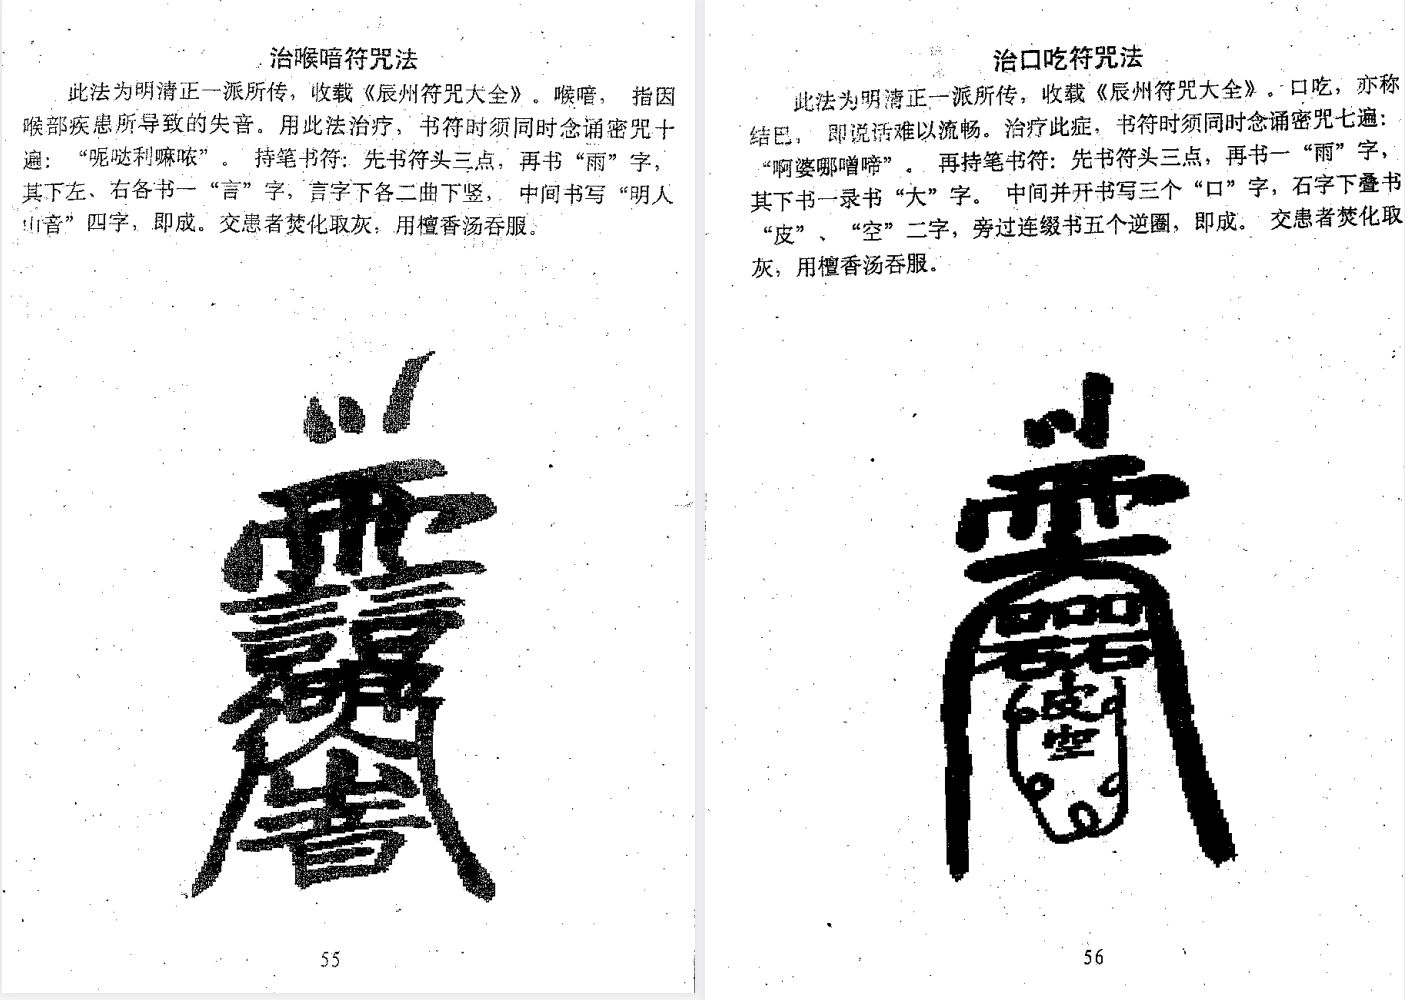 治喉喑符咒法
此法为明清正一派所传，收载《辰州符咒大全》。喉喑， 指因
喉部疾患所导致的失音。用此法治疗， 书符时须同时念诵密咒十
遍： “呢哒利嘛哝” 。 持笔书符：先书符头三点，再书“雨”字，
其下左、右各书一“言”字，言字下各二曲下竖， 中间书写“明人
山音”四字，即成。交患者焚化取灰，用檀香汤吞服。
55
治口吃符咒法
此法为明清正一派所传，收载《辰州符咒大全》。口吃，亦称
结巴， 即说话难以流畅。治疗此症，书符时须同时念诵密咒七遍：
“啊婆哪噌啼” 。 再持笔书符：先书符头三点，再书一“雨”字，
其下书一录书“大”字。 中间并开书写三个“口”字，石字下叠书
“皮”、 “空”二字，旁过连缀书五个逆圈，即成。 交患者焚化取
灰，用檀香汤吞服。
皮
空
56